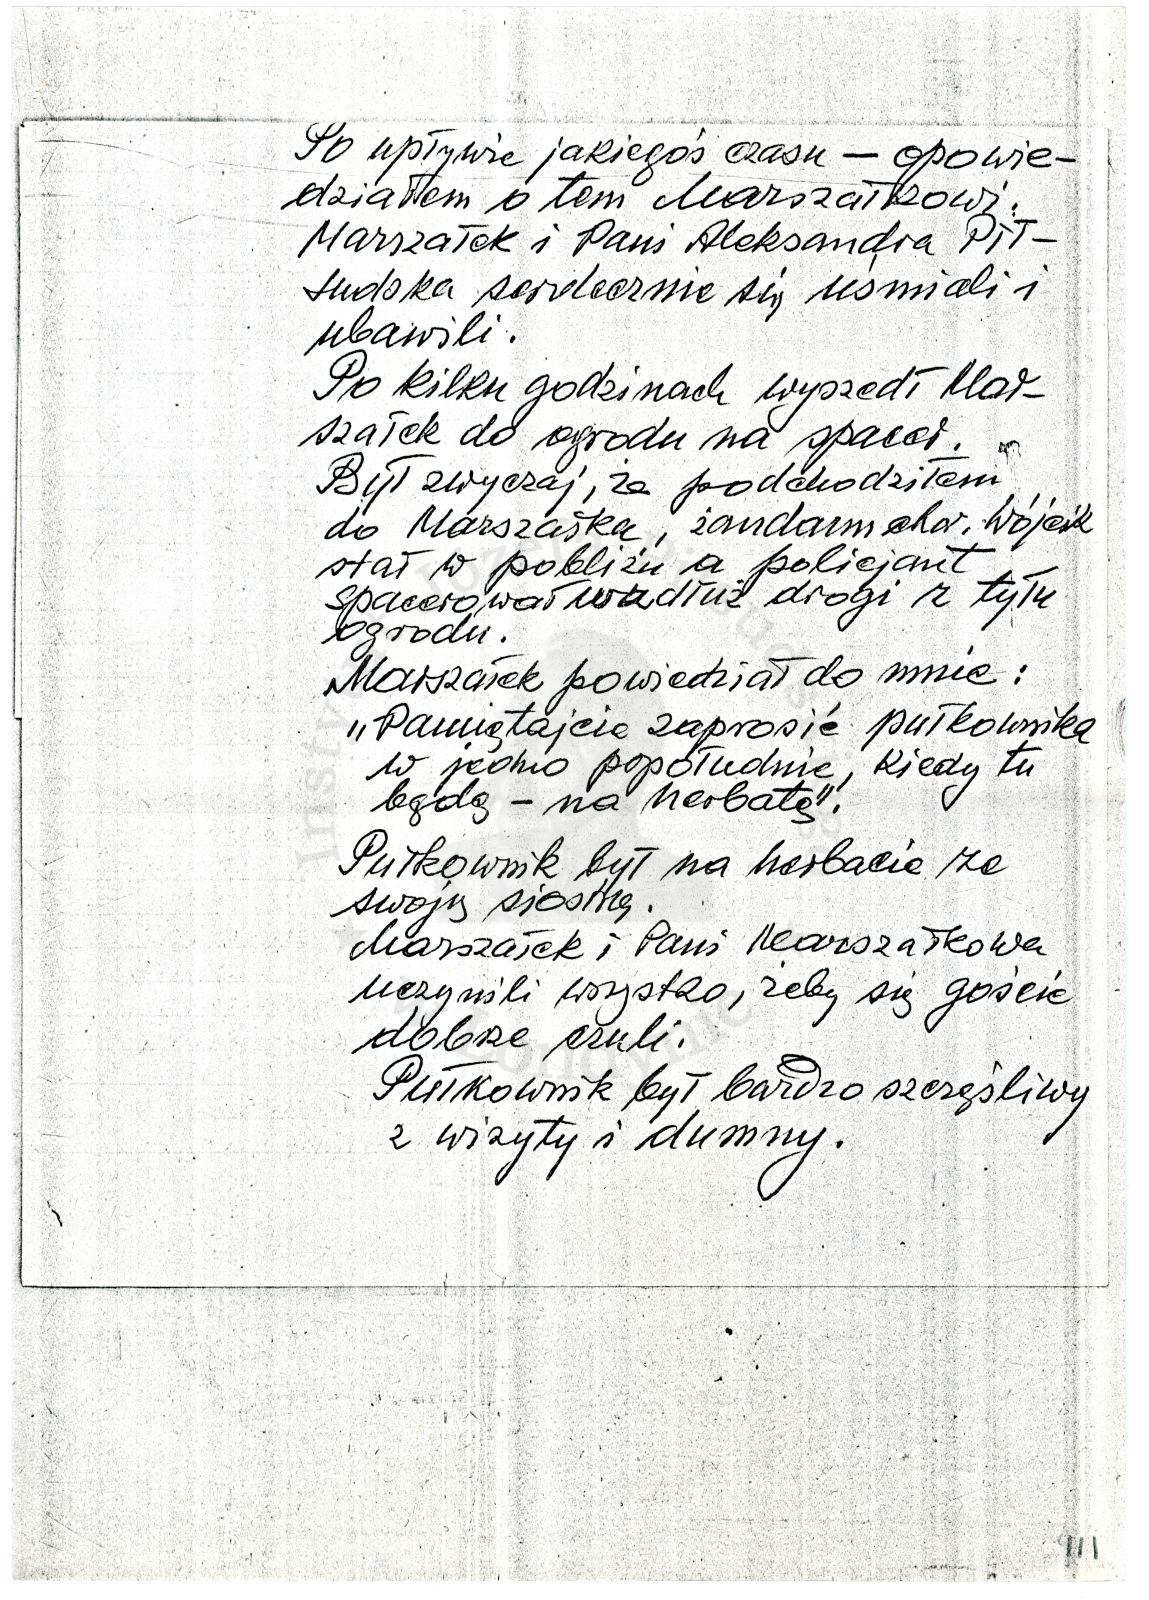 Po upływie jakiegoś czasu — opowie-
działem o tem Marszałkowi.
Marszałek i Pani Aleksandra Pił-
sudska serdecznie się uśmiali i
ubawili.
Po kilku godzinach wyszedł Mar-
szałek do ogrodu na spacer.
Był zwyczaj, że podchodziłem
do Marszałka, żandarm chor. Wójcik
stał w pobliżu a policjant
spacerował wzdłuż drogi z tyłu
ogrodu.
Marszałek powiedział do mnie:
"Pamiętajcie zaprosić pułkownika
w jedno popołudnie, kiedy tu
będę – na herbatę".
Pułkownik był na herbacie ze
swoją siostrą.
Marszałek i Pani Marszałkowa
uczynili wszystko, żeby się goście
dobrze czuli.
Pułkownik był bardzo szczęśliwy
z wizyty i dumny.
111